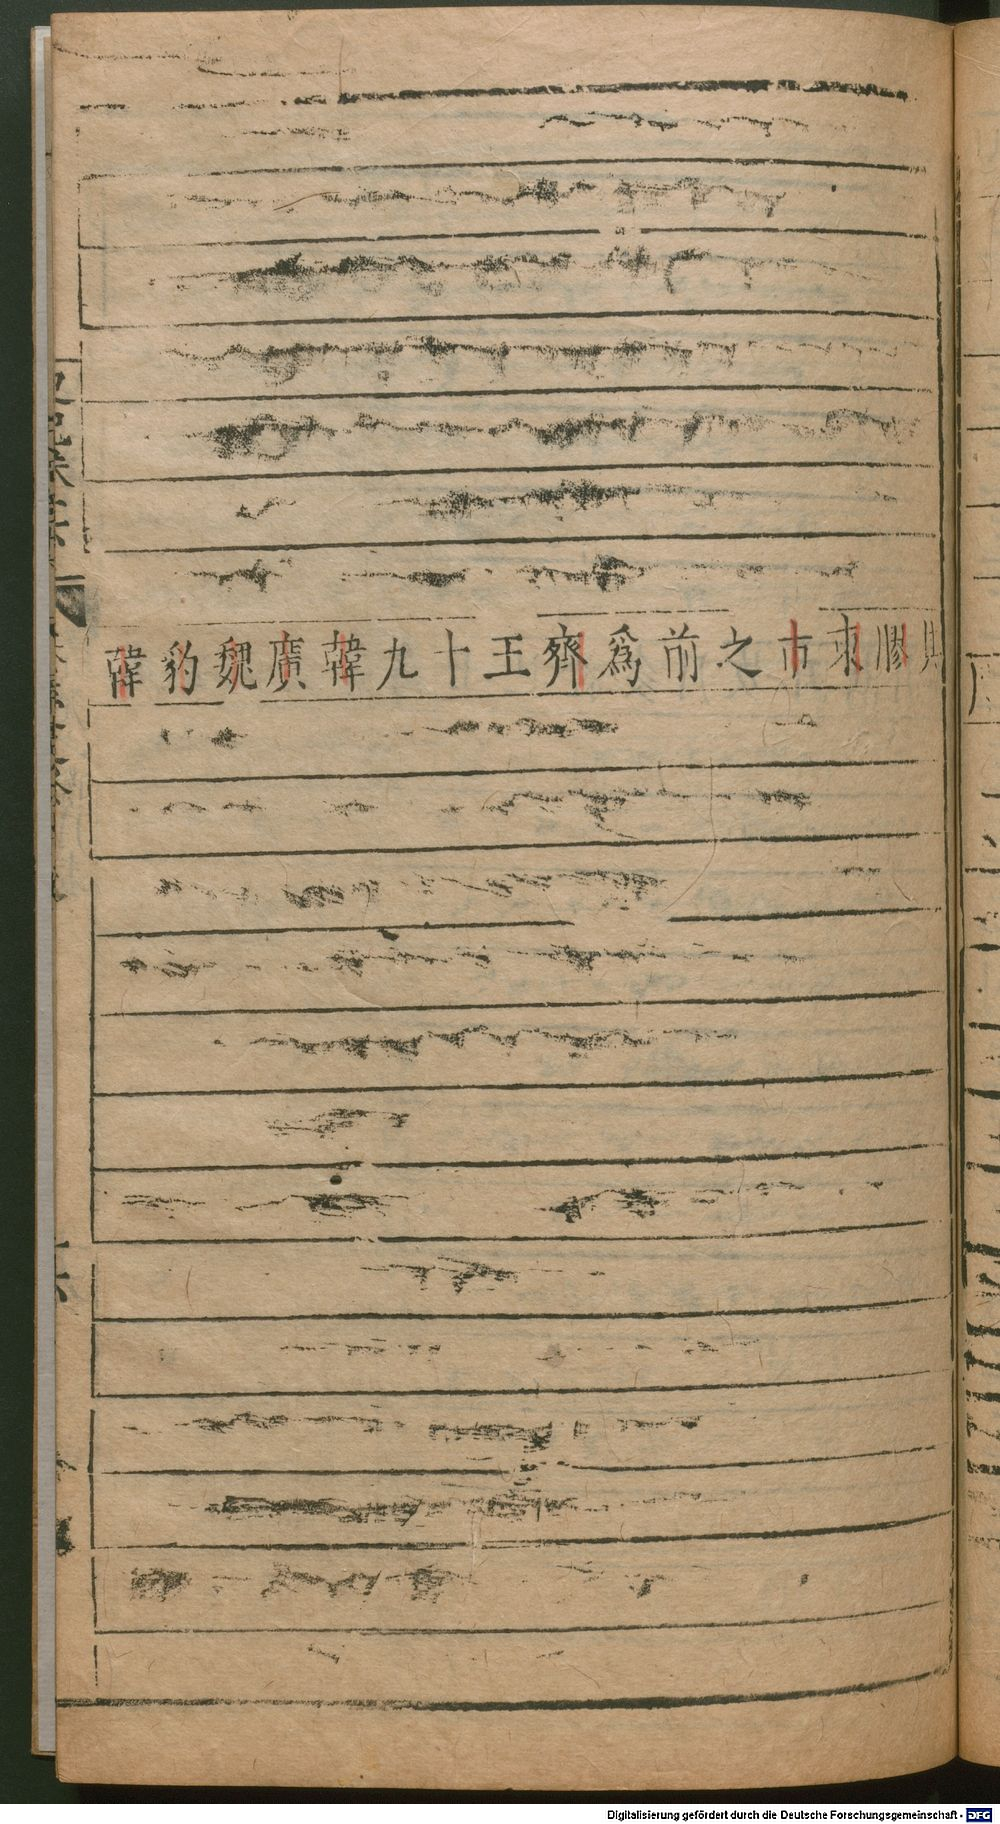 膠東市之前爲齊王十九韓廣魏豹韓
Digitalisierung gefördert durch die Deutsche Forschungsgemeinschaft - DFG